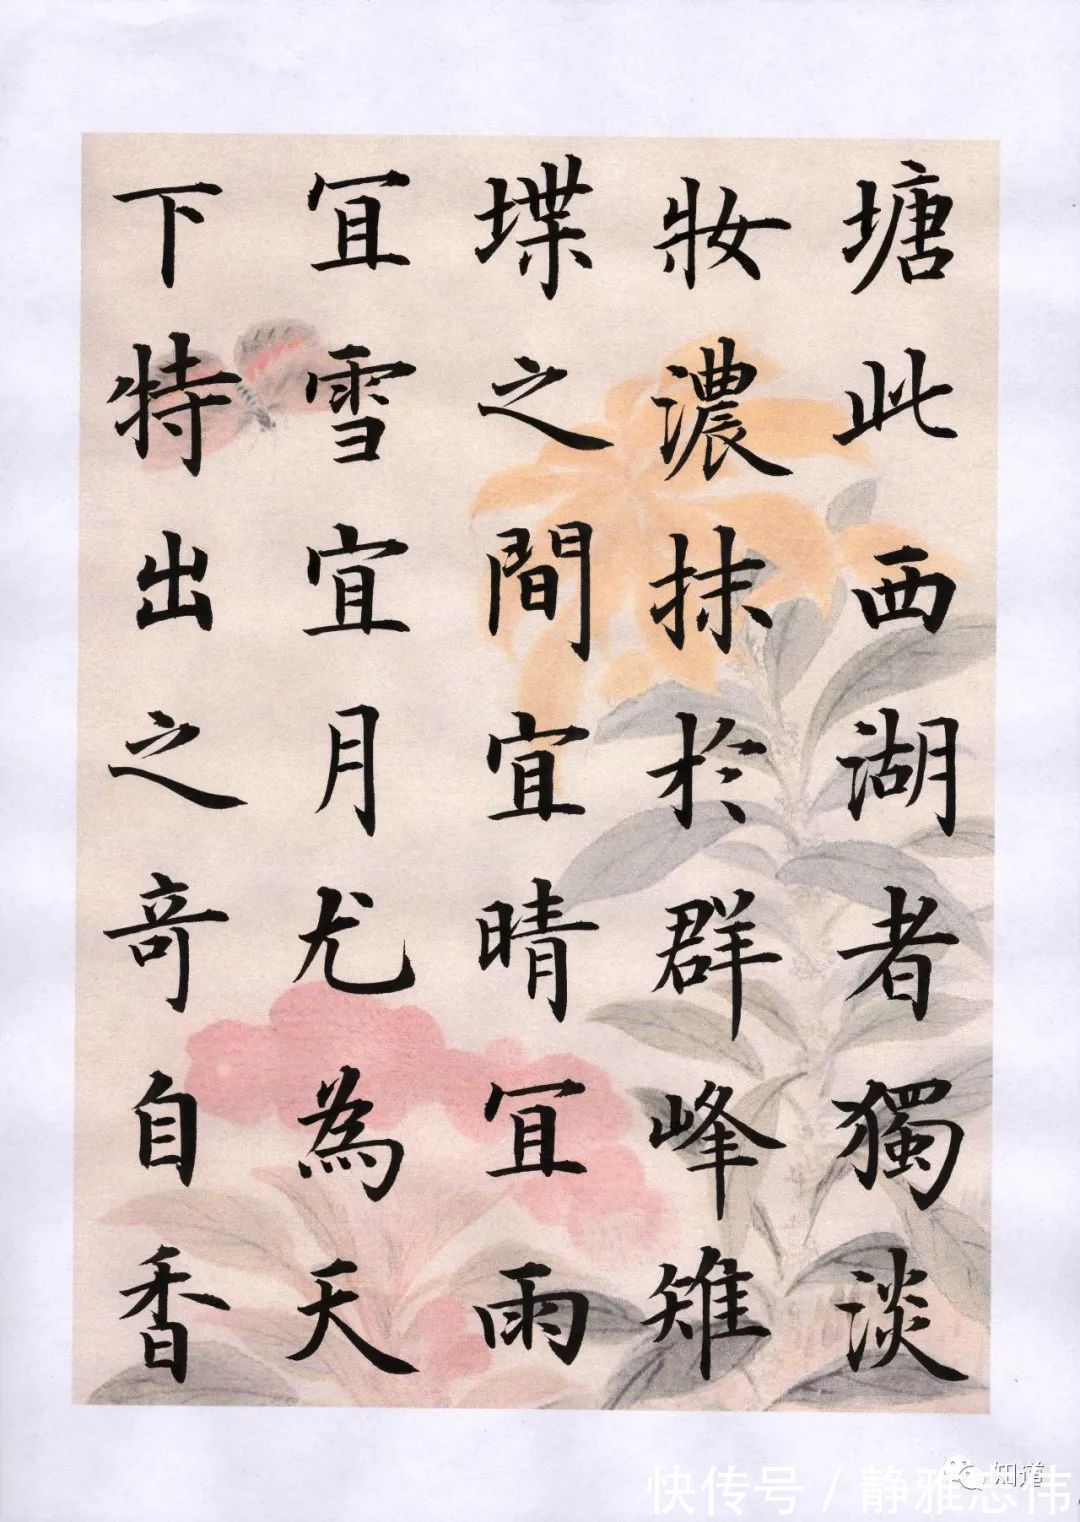 塘此西湖者獨淡
妝濃抹於群峰雉
堞之間宜晴宜雨
宜雪宜月尤為天
下特出之奇自香
知道
快传号/静雅志伟